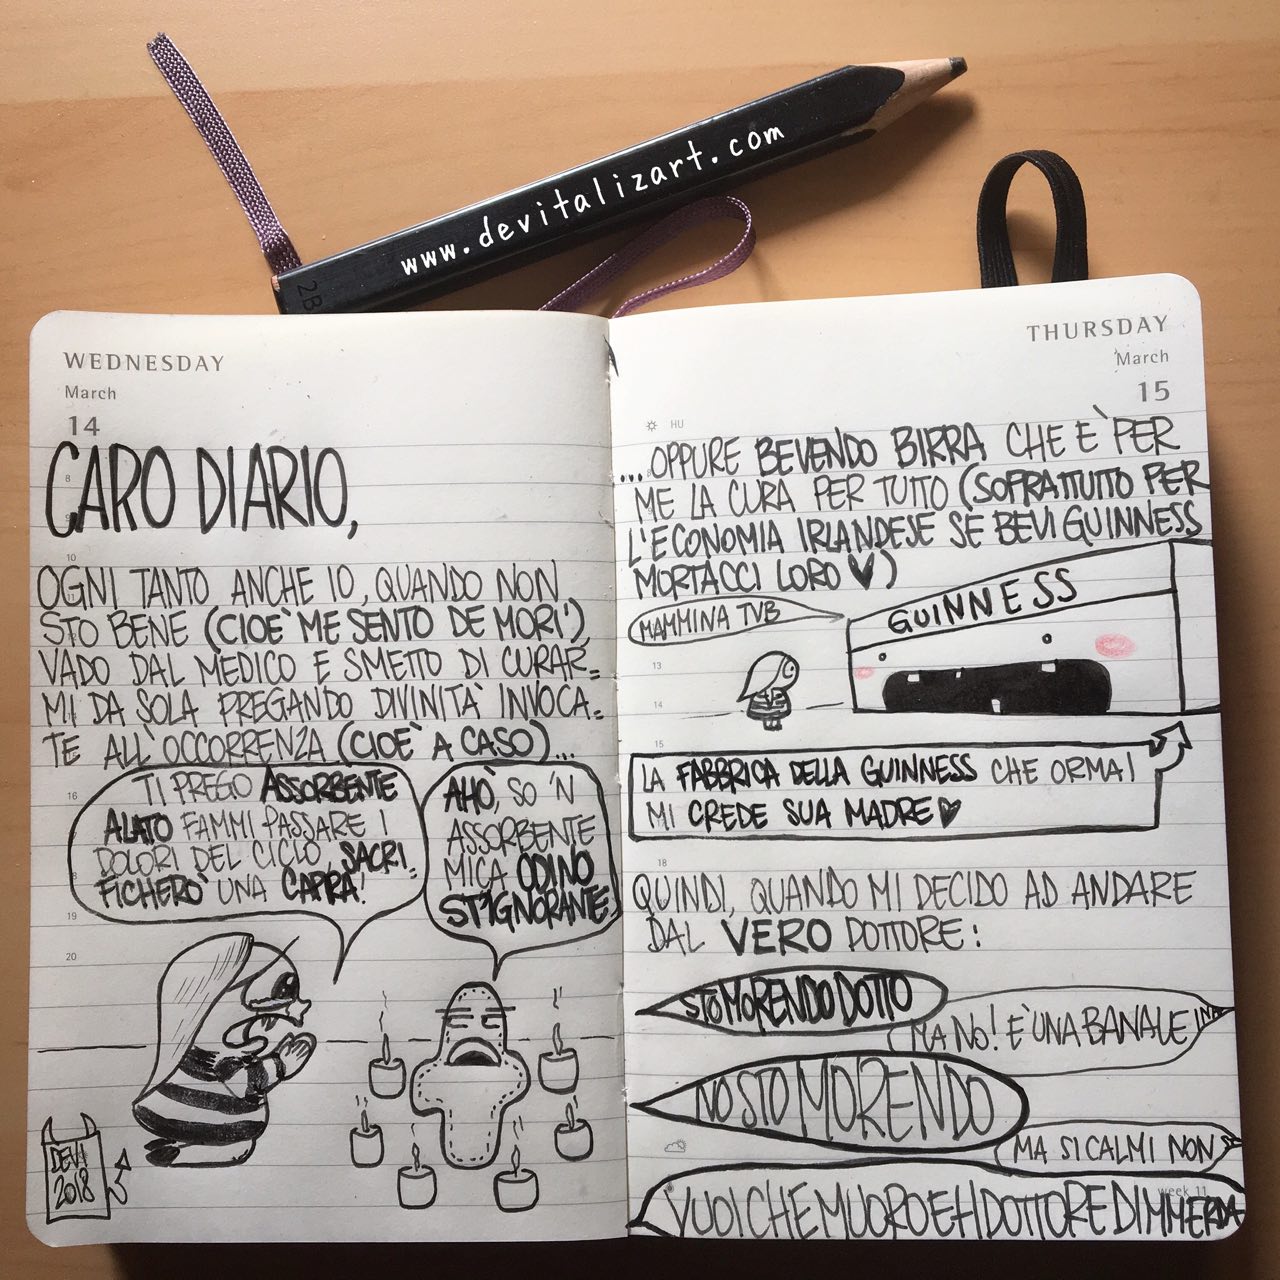 www.devitalizart.com
2B
WEDNESDAY
March
14
CARO DIARIO,
OGNI TANTO ANCHE IO, QUANDO NON
STO BENE (CIOÈ ME SENTO DE MORI')
VADO DAL MEDICO E SMETTO DI CURAR=
MI DA SOLA PREGANDO DIVINITÀ INVOCA=
TE ALL'OCCORRENZA (CIOÈ A CASO)...
TI PREGO ASSORBENTE
ALATO FAMMI PASSARE I
DOLORI DEL CICLO, SACRI
FICHERÒ UNA CAPRA!
AHÒ, SO 'N
ASSORBENTE
MICA ODINO
ST'IGNORANTE
DEVI
2018
8
10
11
16
19
20
THURSDAY
March
15
HU
...OPPURE BEVENDO BIRRA CHE È PER
ME LA CURA PER TUTTO (SOPRATTUTTO PER
L'ECONOMIA IRLANDESE SE BEVI GUINNESS
MORTACCI LORO ♥)
MAMMINA TVB
GUINNESS
13
14
15
LA FABBRICA DELLA GUINNESS CHE ORMAI
MI CREDE SUA MADRE ♥
18
QUINDI, QUANDO MI DECIDO AD ANDARE
DAL VERO DOTTORE:
STO MORENDO DOTTO
MA NO! È UNA BANALE INF
NO STO MORENDO
MA SI CALMI NON S
week 11
VUOI CHE MUORO EH DOTTORE DI MMERDA